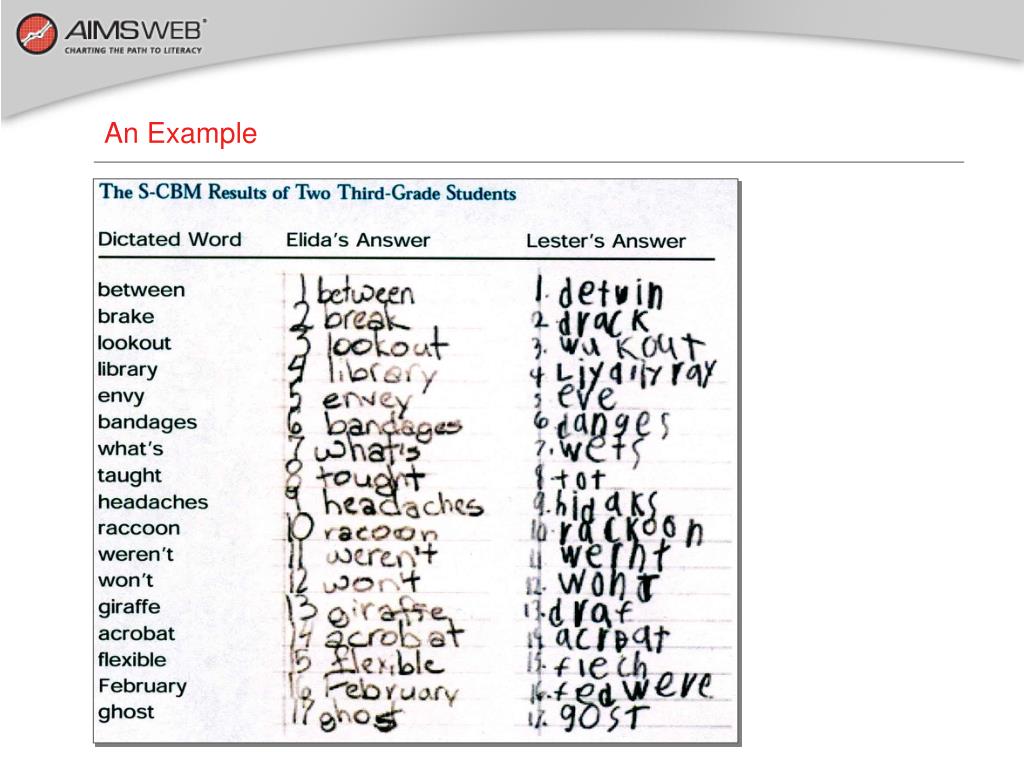 AIMSWEB®
CHARTING THE PATH TO LITERACY
An Example
The S-CBM Results of Two Third-Grade Students
Dictated Word Elida's Answer Lester's Answer
between 1 between 1. detwin
brake 2 break 2 drack
lookout 3 lookout 3. wukout
library 4 library 4 Liydilyray
envy 5 envey 5 eve
bandages 6 bandages 6 danges
what's 7 what's 7. wets
taught 8 tought 8 tot
headaches 9 headaches 9. hidaks
raccoon 10 racoon 10. rackoon
weren't 11 weren't 11 wernt
won't 12 won't 12. wont
giraffe 13 giraffe 13. draf
acrobat 14 acrobat 14. acrbat
flexible 15 flexible 15. flech
February 16 February 16. fedwere
ghost 17 ghost 17. gost